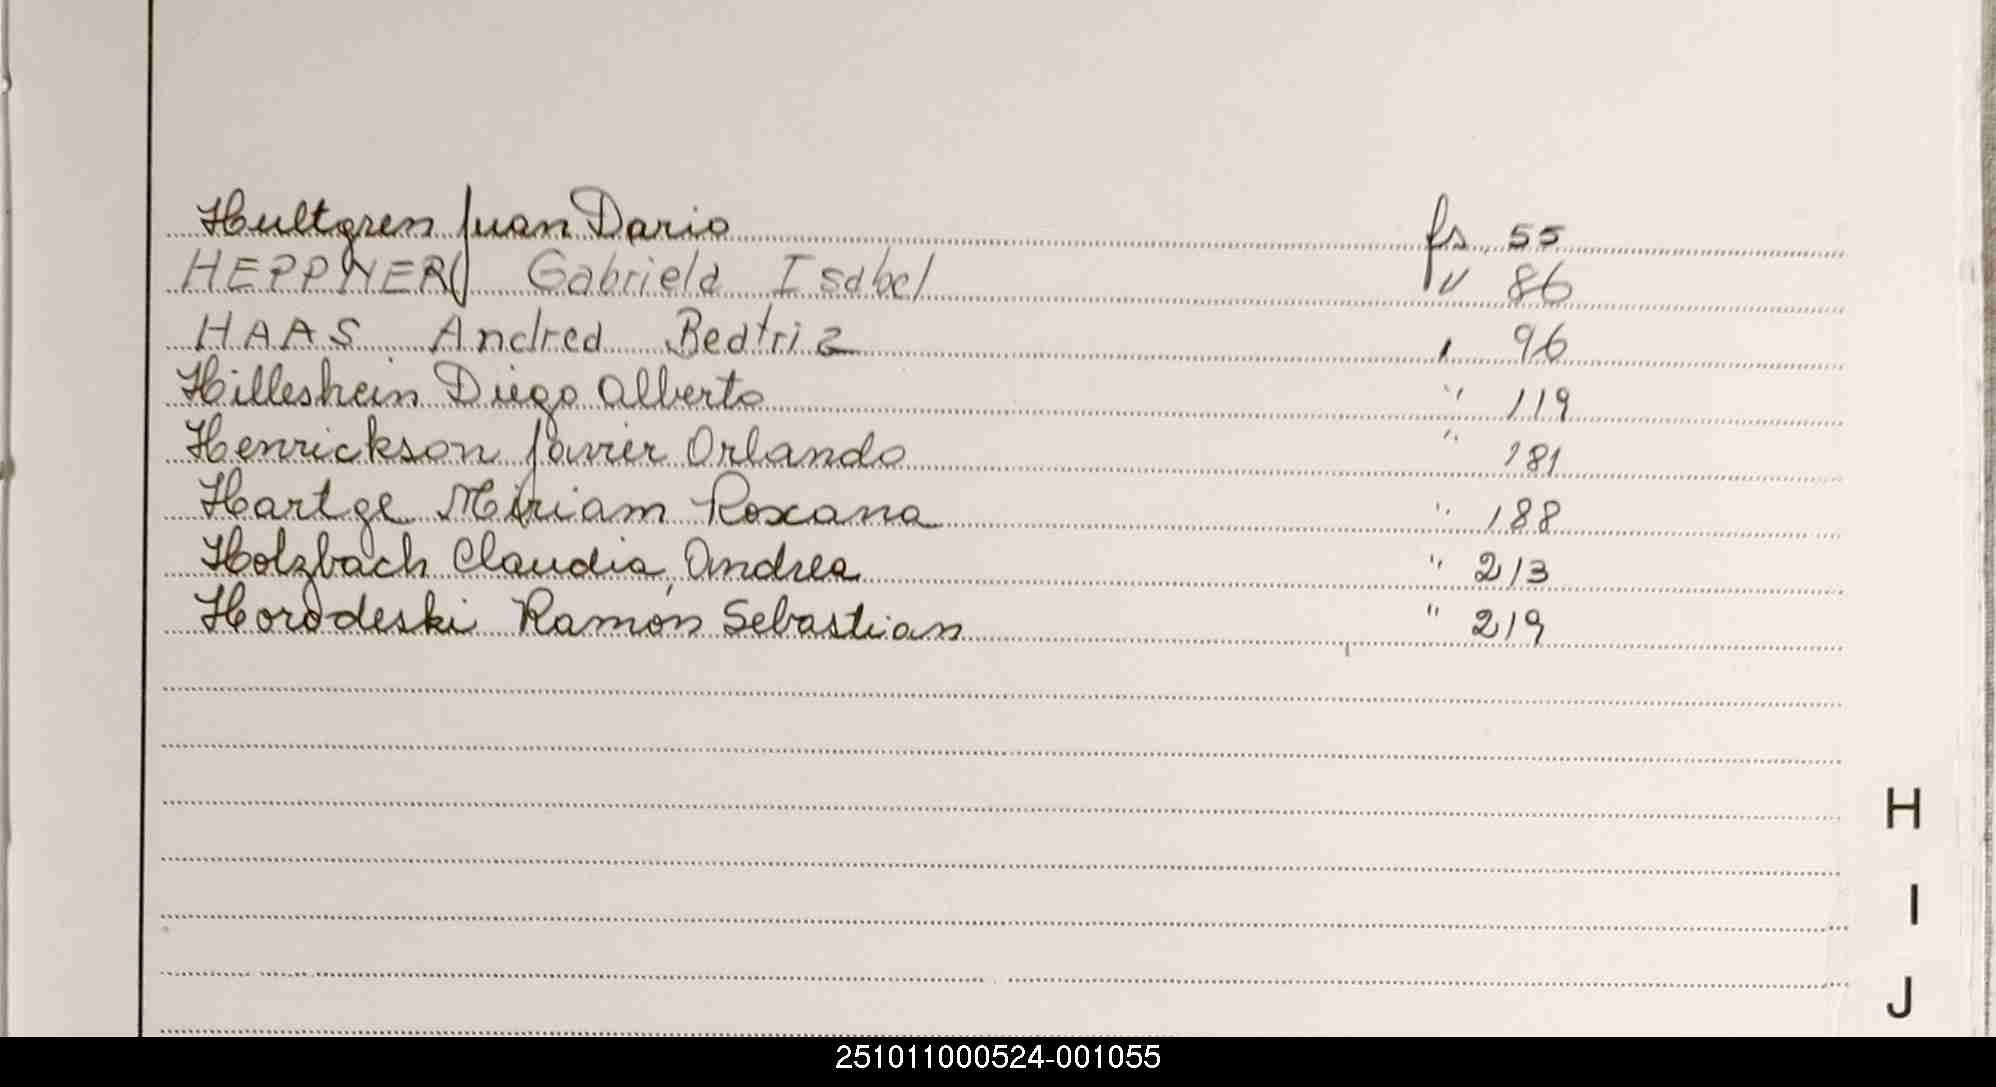 Hultgren Juan Dario fs. 55
HEPPNER Gabriela Isabel " 86
HAAS Andrea Beatriz " 96
Hilleshein Diego Alberto " 119
Henrickson Javier Orlando " 181
Hartge Miriam Roxana " 188
Holzbach Claudia Andrea " 213
Horodeski Ramón Sebastian " 219
H
I
J
251011000524-001055